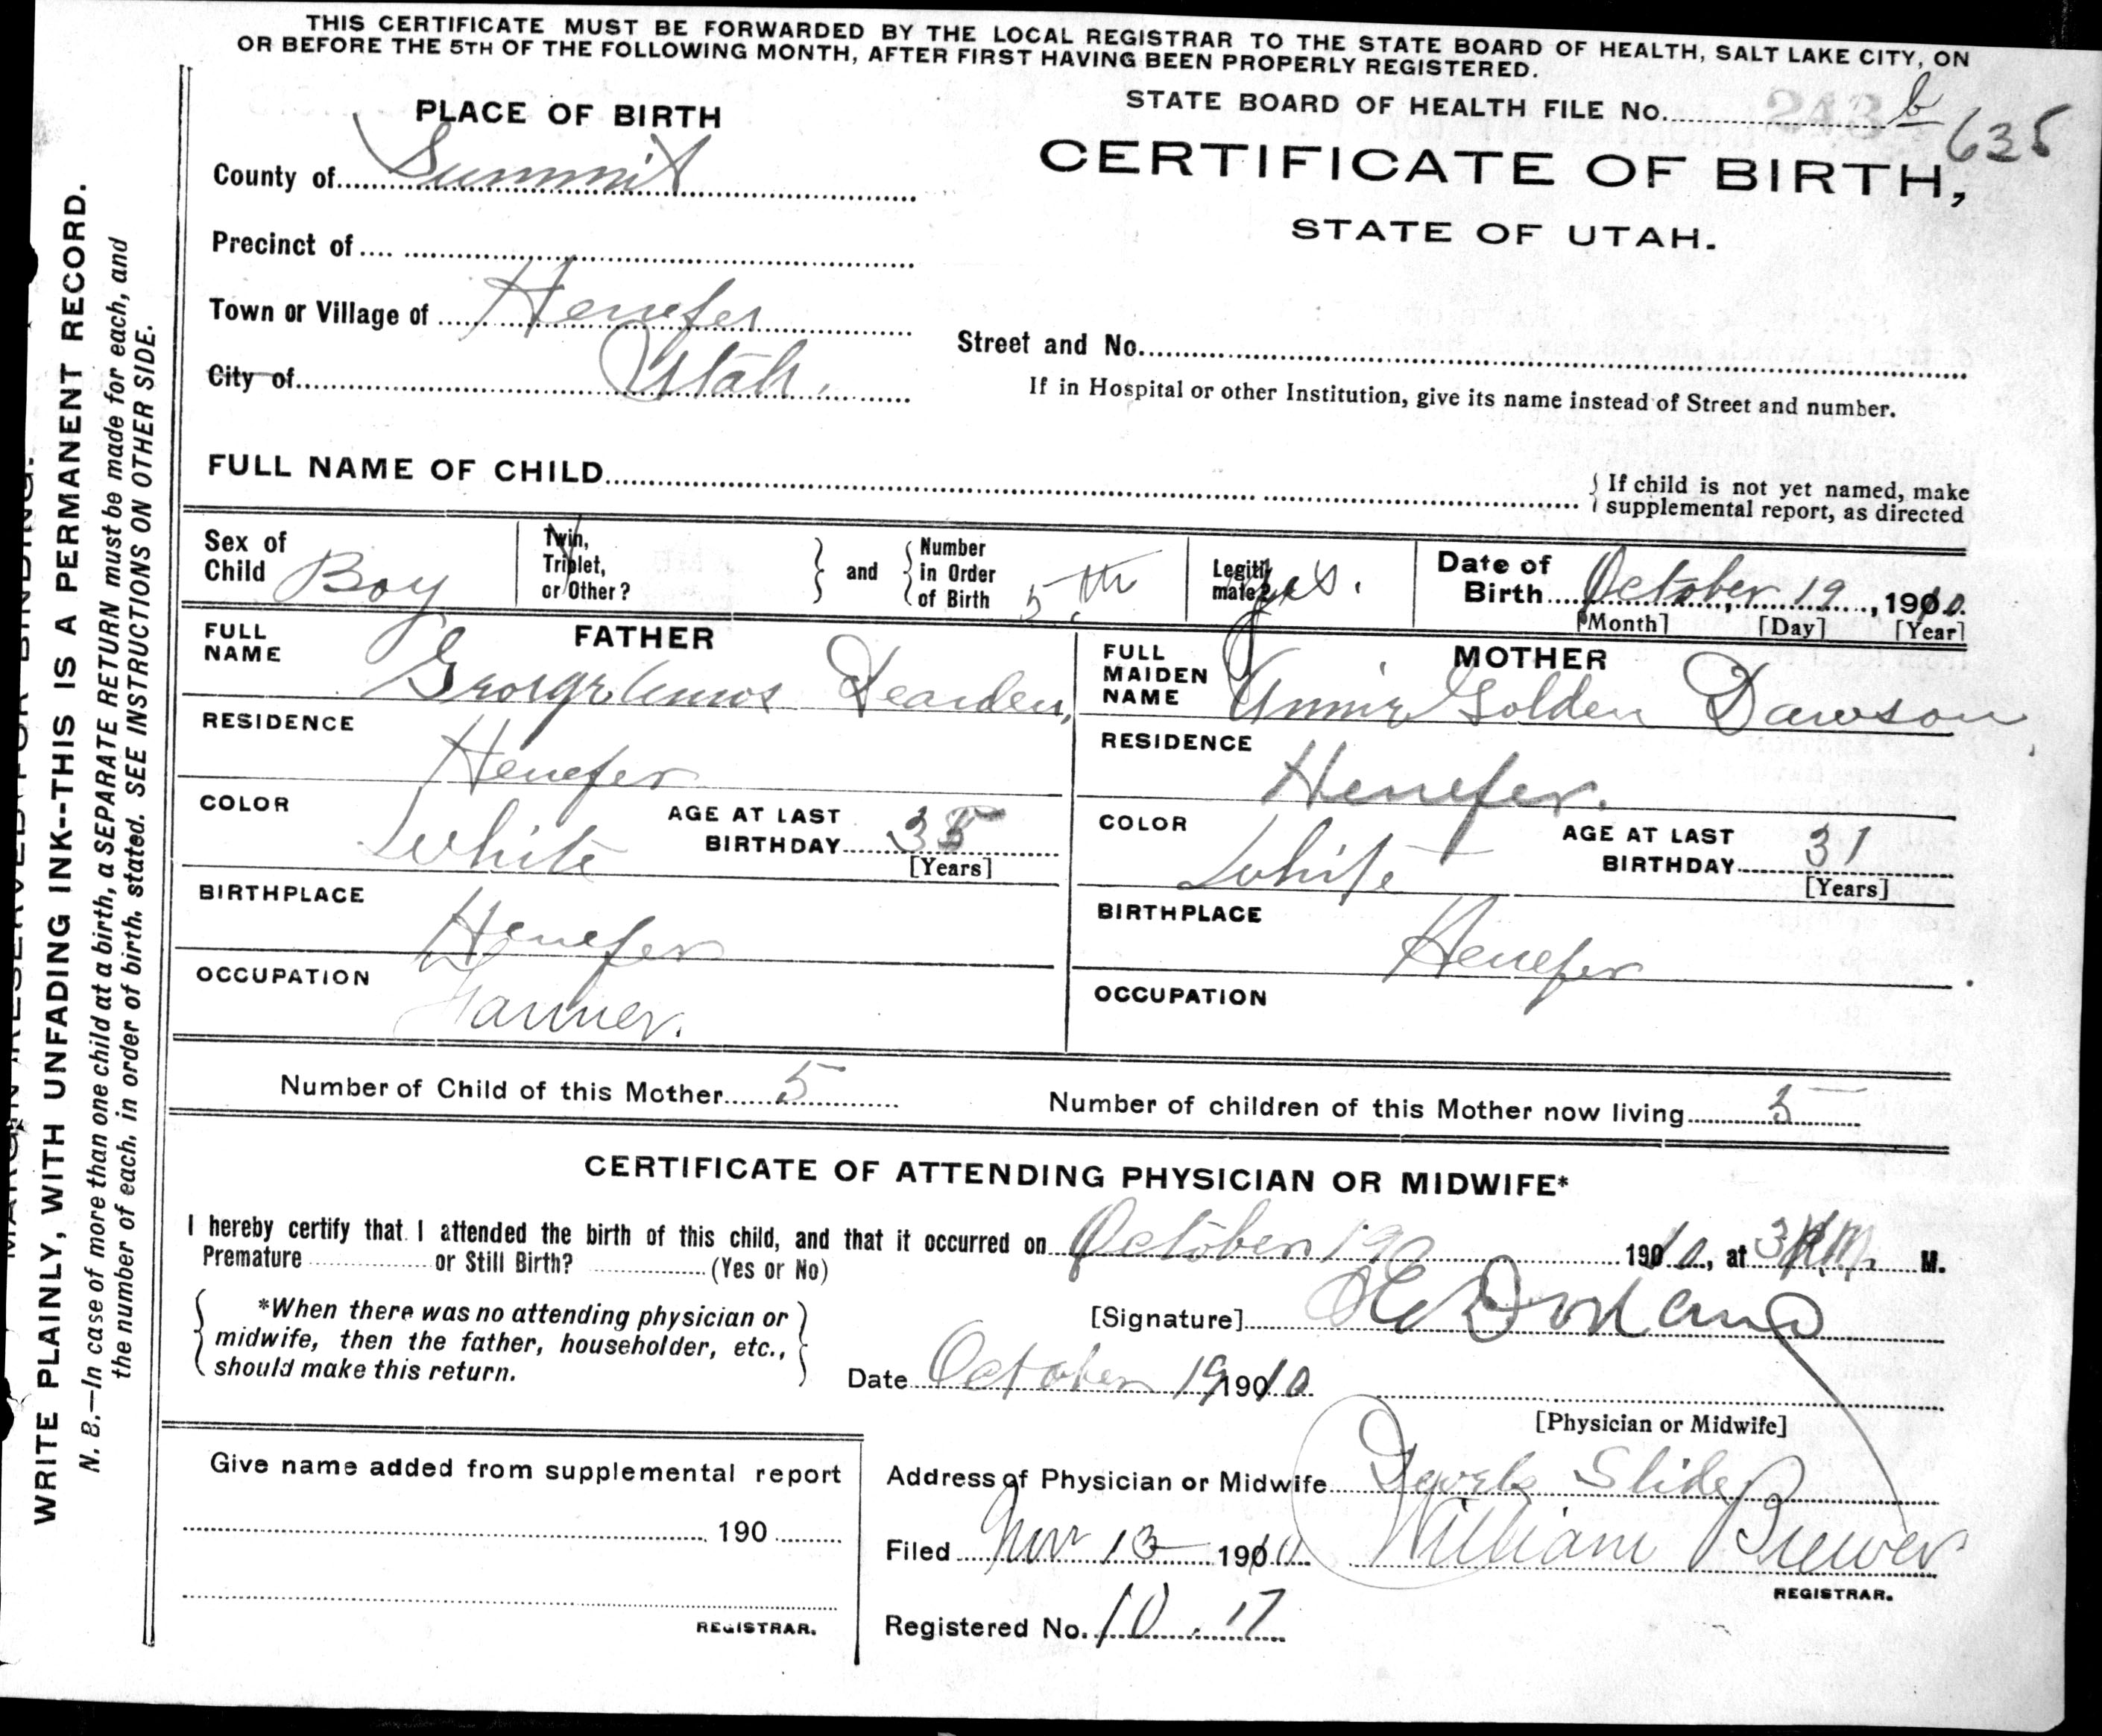 THIS CERTIFICATE MUST BE FORWARDED BY THE LOCAL REGISTRAR TO THE STATE BOARD OF HEALTH, SALT LAKE CITY, ON
OR BEFORE THE 5TH OF THE FOLLOWING MONTH, AFTER FIRST HAVING BEEN PROPERLY REGISTERED.
WRITE PLAINLY, WITH UNFADING INK--THIS IS A PERMANENT RECORD.
N. B.—In case of more than one child at a birth, a SEPARATE RETURN must be made for each, and
the number of each, in order of birth, stated. SEE INSTRUCTIONS ON OTHER SIDE.
PLACE OF BIRTH
STATE BOARD OF HEALTH FILE No. 243 b 635
CERTIFICATE OF BIRTH,
STATE OF UTAH.
County of Summit
Precinct of
Town or Village of Henefer
City of Utah.
Street and No.
If in Hospital or other Institution, give its name instead of Street and number.
FULL NAME OF CHILD
If child is not yet named, make
supplemental report, as directed
Sex of Child Boy
Twin, Triplet, or Other?
and
Number in Order of Birth 5th
Legitimate? yes.
Date of Birth October 19, 1910
[Month] [Day] [Year]
FATHER
FULL NAME George Amos Dearden,
RESIDENCE Henefer
COLOR White
AGE AT LAST BIRTHDAY 35
[Years]
BIRTHPLACE Henefer
OCCUPATION Farmer.
MOTHER
FULL MAIDEN NAME Annie Golden Dawson
RESIDENCE Henefer.
COLOR White
AGE AT LAST BIRTHDAY 31
[Years]
BIRTHPLACE Henefer
OCCUPATION
Number of Child of this Mother 5
Number of children of this Mother now living 5
CERTIFICATE OF ATTENDING PHYSICIAN OR MIDWIFE*
I hereby certify that I attended the birth of this child, and that it occurred on October 19 1910, at 3 M.
Premature or Still Birth? (Yes or No)
*When there was no attending physician or
midwife, then the father, householder, etc.,
should make this return.
[Signature]
Date October 19 1910
[Physician or Midwife]
Give name added from supplemental report
190
REGISTRAR.
Address of Physician or Midwife Devils Slide
Filed Nov 13 1910
William Brewer
REGISTRAR.
Registered No. 10.17